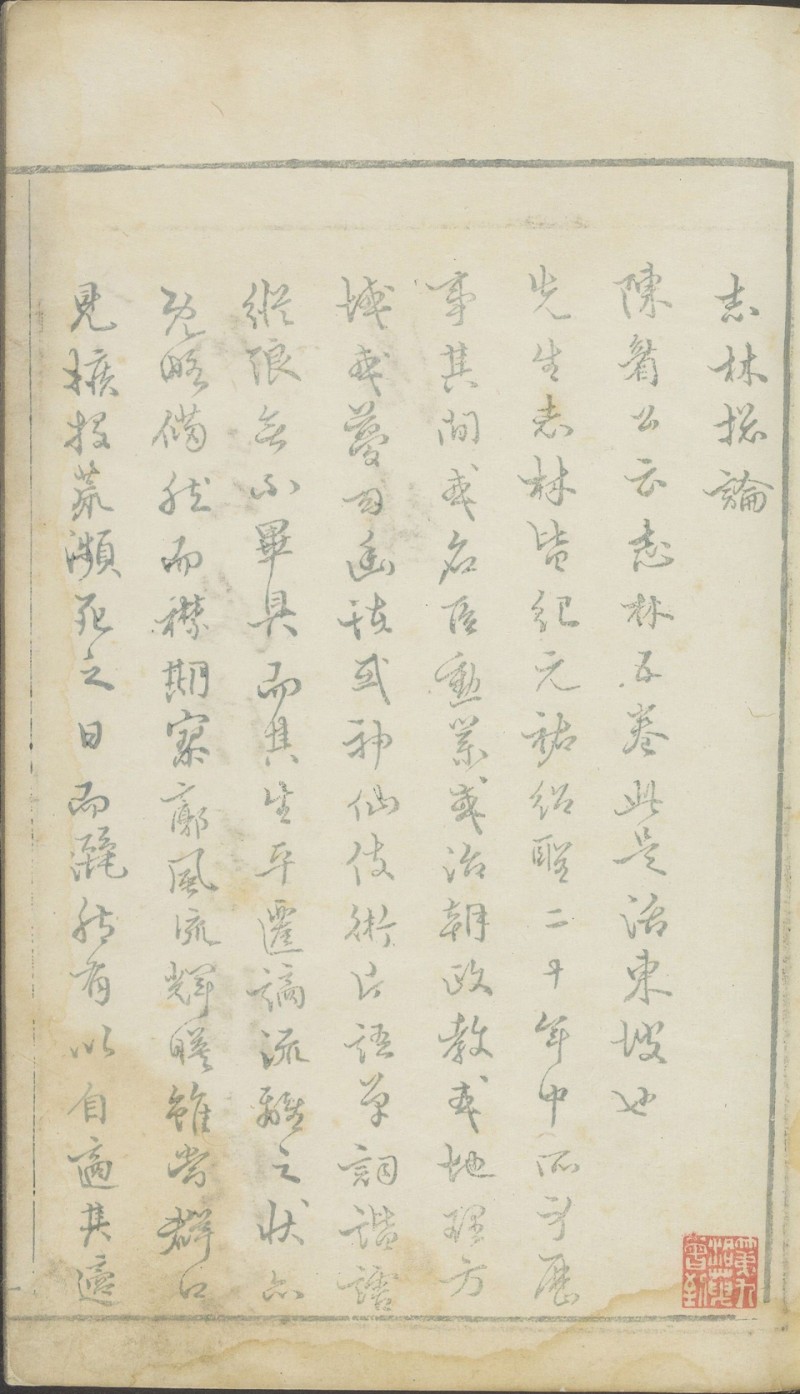 志林摠論
陳眉公云志林五卷此是活東坡也
先生志林皆紀元祐紹聖二十年中所身歷
事其間或名臣勳業或治朝政教或地理方
域或夢幻幽怪或神仙伎術片語單詞諧謔
縱浪無不畢具而其生平遷謫流離之狀亦
既略備然而襟期寥廓風流輝暎雖當群口
見擠投荒瀕死之日而灑然有以自適其適